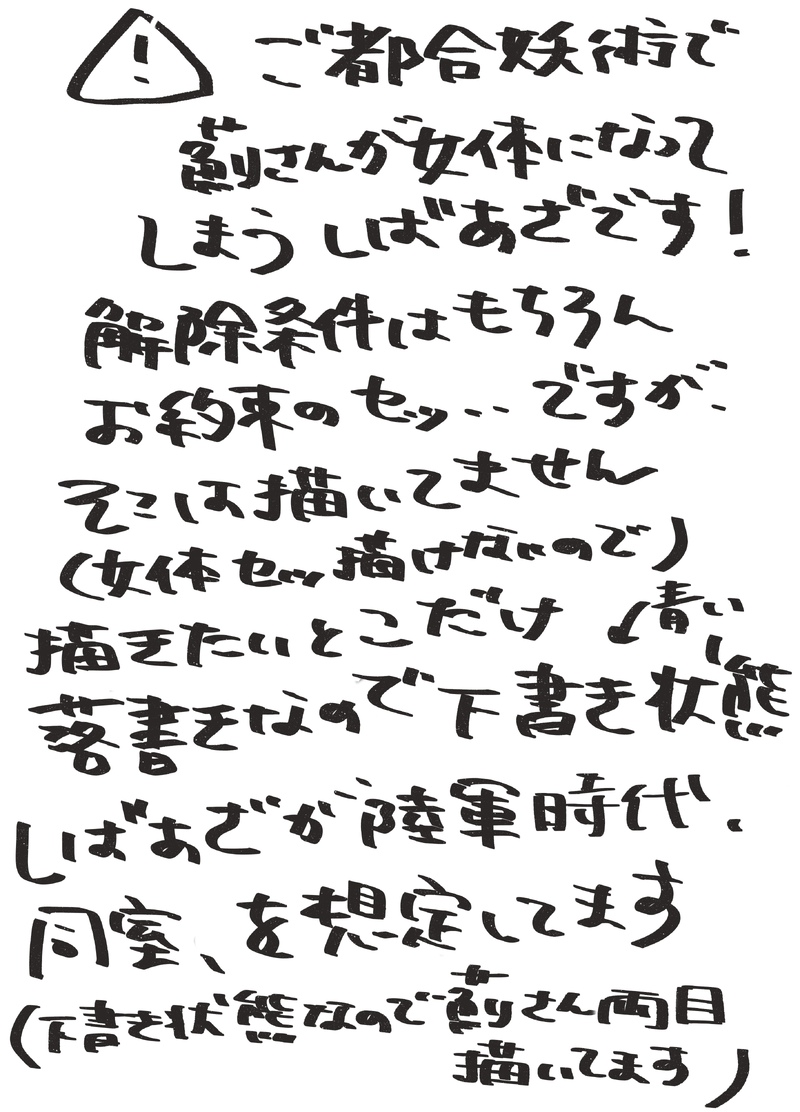 ご都合妖術で
薊さんが女体になって
しまう しばあざです！
解除条件はもちろん
お約束のセッ‥ですが‥
そこは描いてません
(女体セッ描けないので)
描きたいとこだけ ↙青い
落書きなので下書き状態
しばあざが陸軍時代、
同室、を想定してます
(下書き状態なので薊さん両目
描いてます)